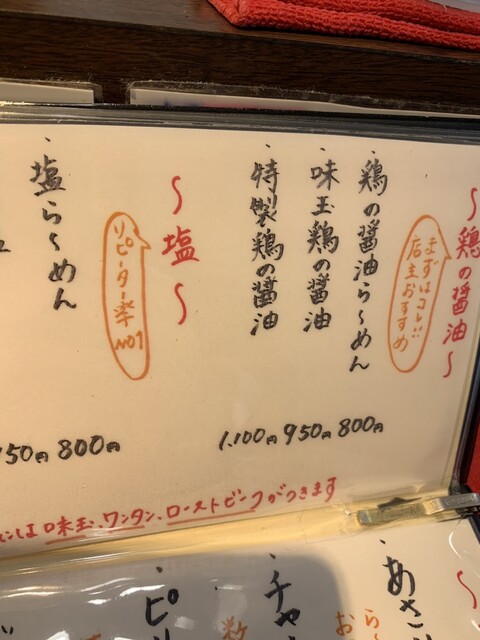 〜鶏の醤油〜
まずはコレ!!
店主おすすめ
・鶏の醤油ら〜めん 800円
・味玉鶏の醤油 950円
・特製鶏の醤油 1,100円
〜塩〜
リピーター率NO1
・塩ら〜めん 800円
950円
は味玉、ワンタン、ローストビーフがつきます
〜
あさ
ら
お
チャ
数
ピ